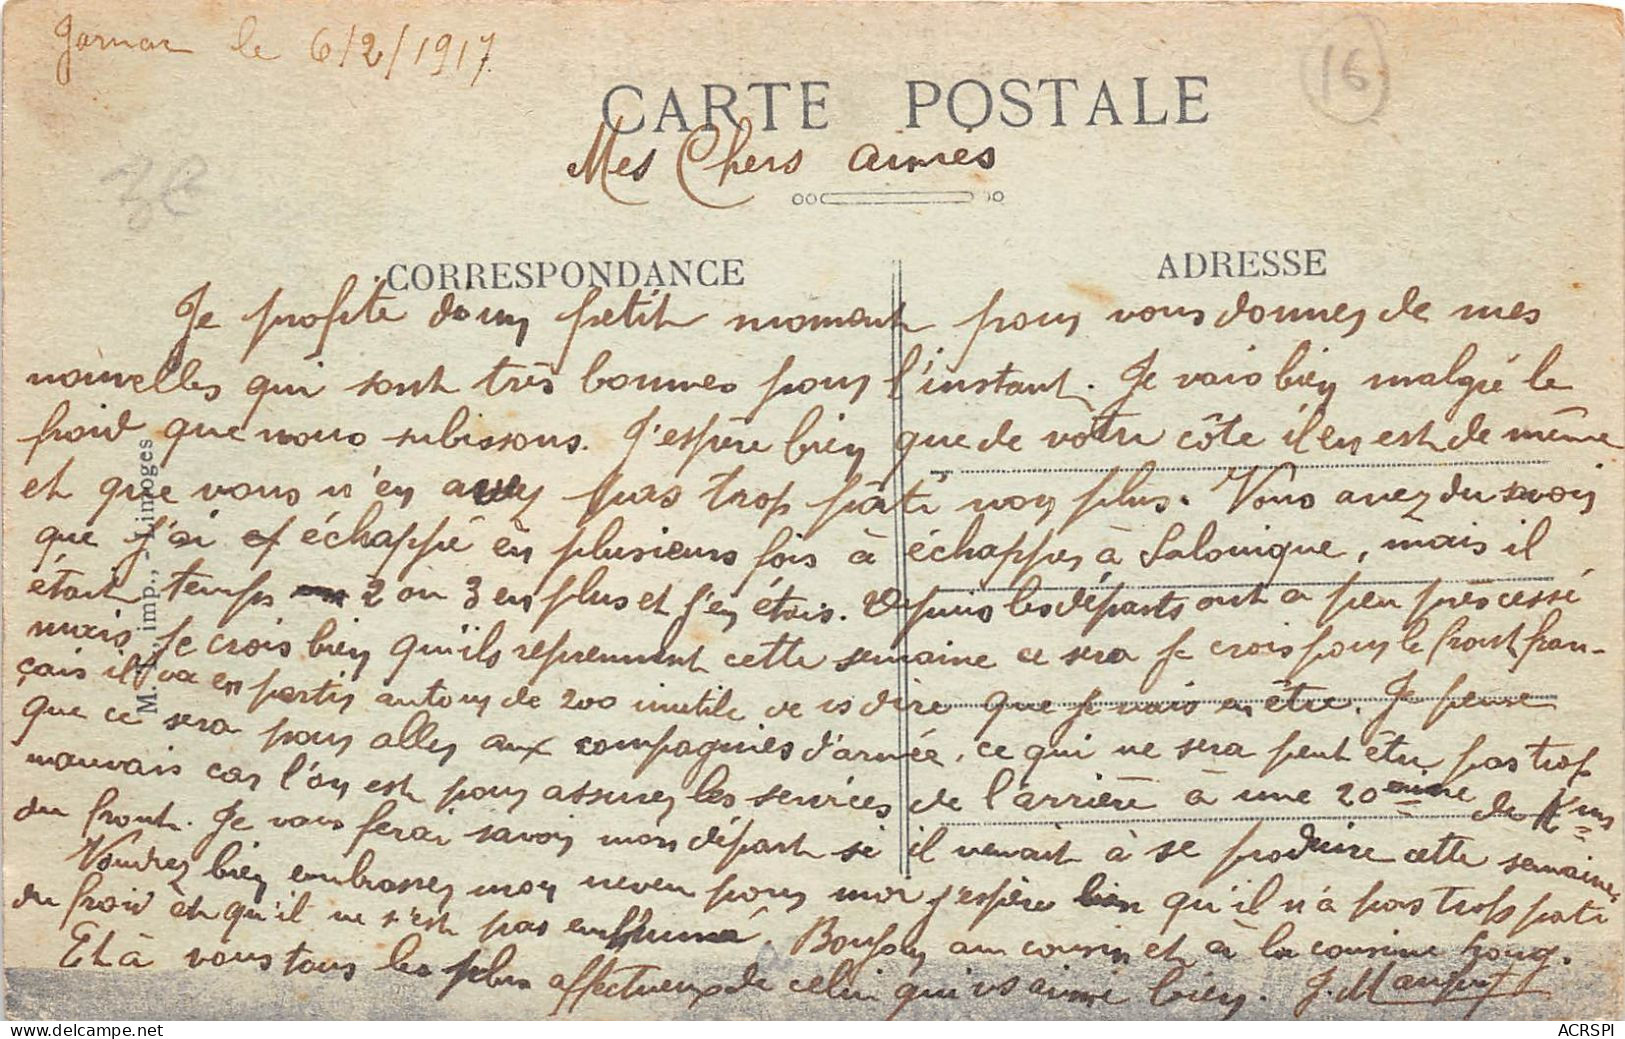 Jarnac le 6/2/1917
16
CARTE POSTALE
Mes Chers aimés
CORRESPONDANCE
ADRESSE
Je profite d'un petit moment pour vous donner de mes
nouvelles qui sont très bonnes pour l'instant. Je vais bien malgré le
froid que nous subissons. J'espère bien que de votre côté il en est de même
et que vous n'en avez pas trop pâti non plus. Vous avez du savoir
que j'ai échappé en plusieurs fois à échapper à Salonique, mais il
était temps 2 ou 3 en plus et j'en étais. Depuis les départs ont a peu près cessé
mais je crois bien qu'ils reprennent cette semaine ce sera je crois pour le front fran-
çais il va en partir autour de 200 inutile de vs dire que je vais en être. Je pense
que ce sera pour aller aux compagnies d'armée, ce qui ne sera peut être pas trop
mauvais car l'on est pour assurer les services de l'arrière à une 20aine de Kms
du front. Je vous ferai savoir mon départ si il venait à se produire cette semaine.
Voudrez bien embrasser mon neveu pour moi j'espère bien qu'il n'a pas trop pati
du froid et qu'il ne s'est pas enrhumé Bonjour au cousin et à la cousine
Et à vous tous les plus affectueux de celui qui vs aime bien. J.
M. imp., - Limoges
ACRSPI